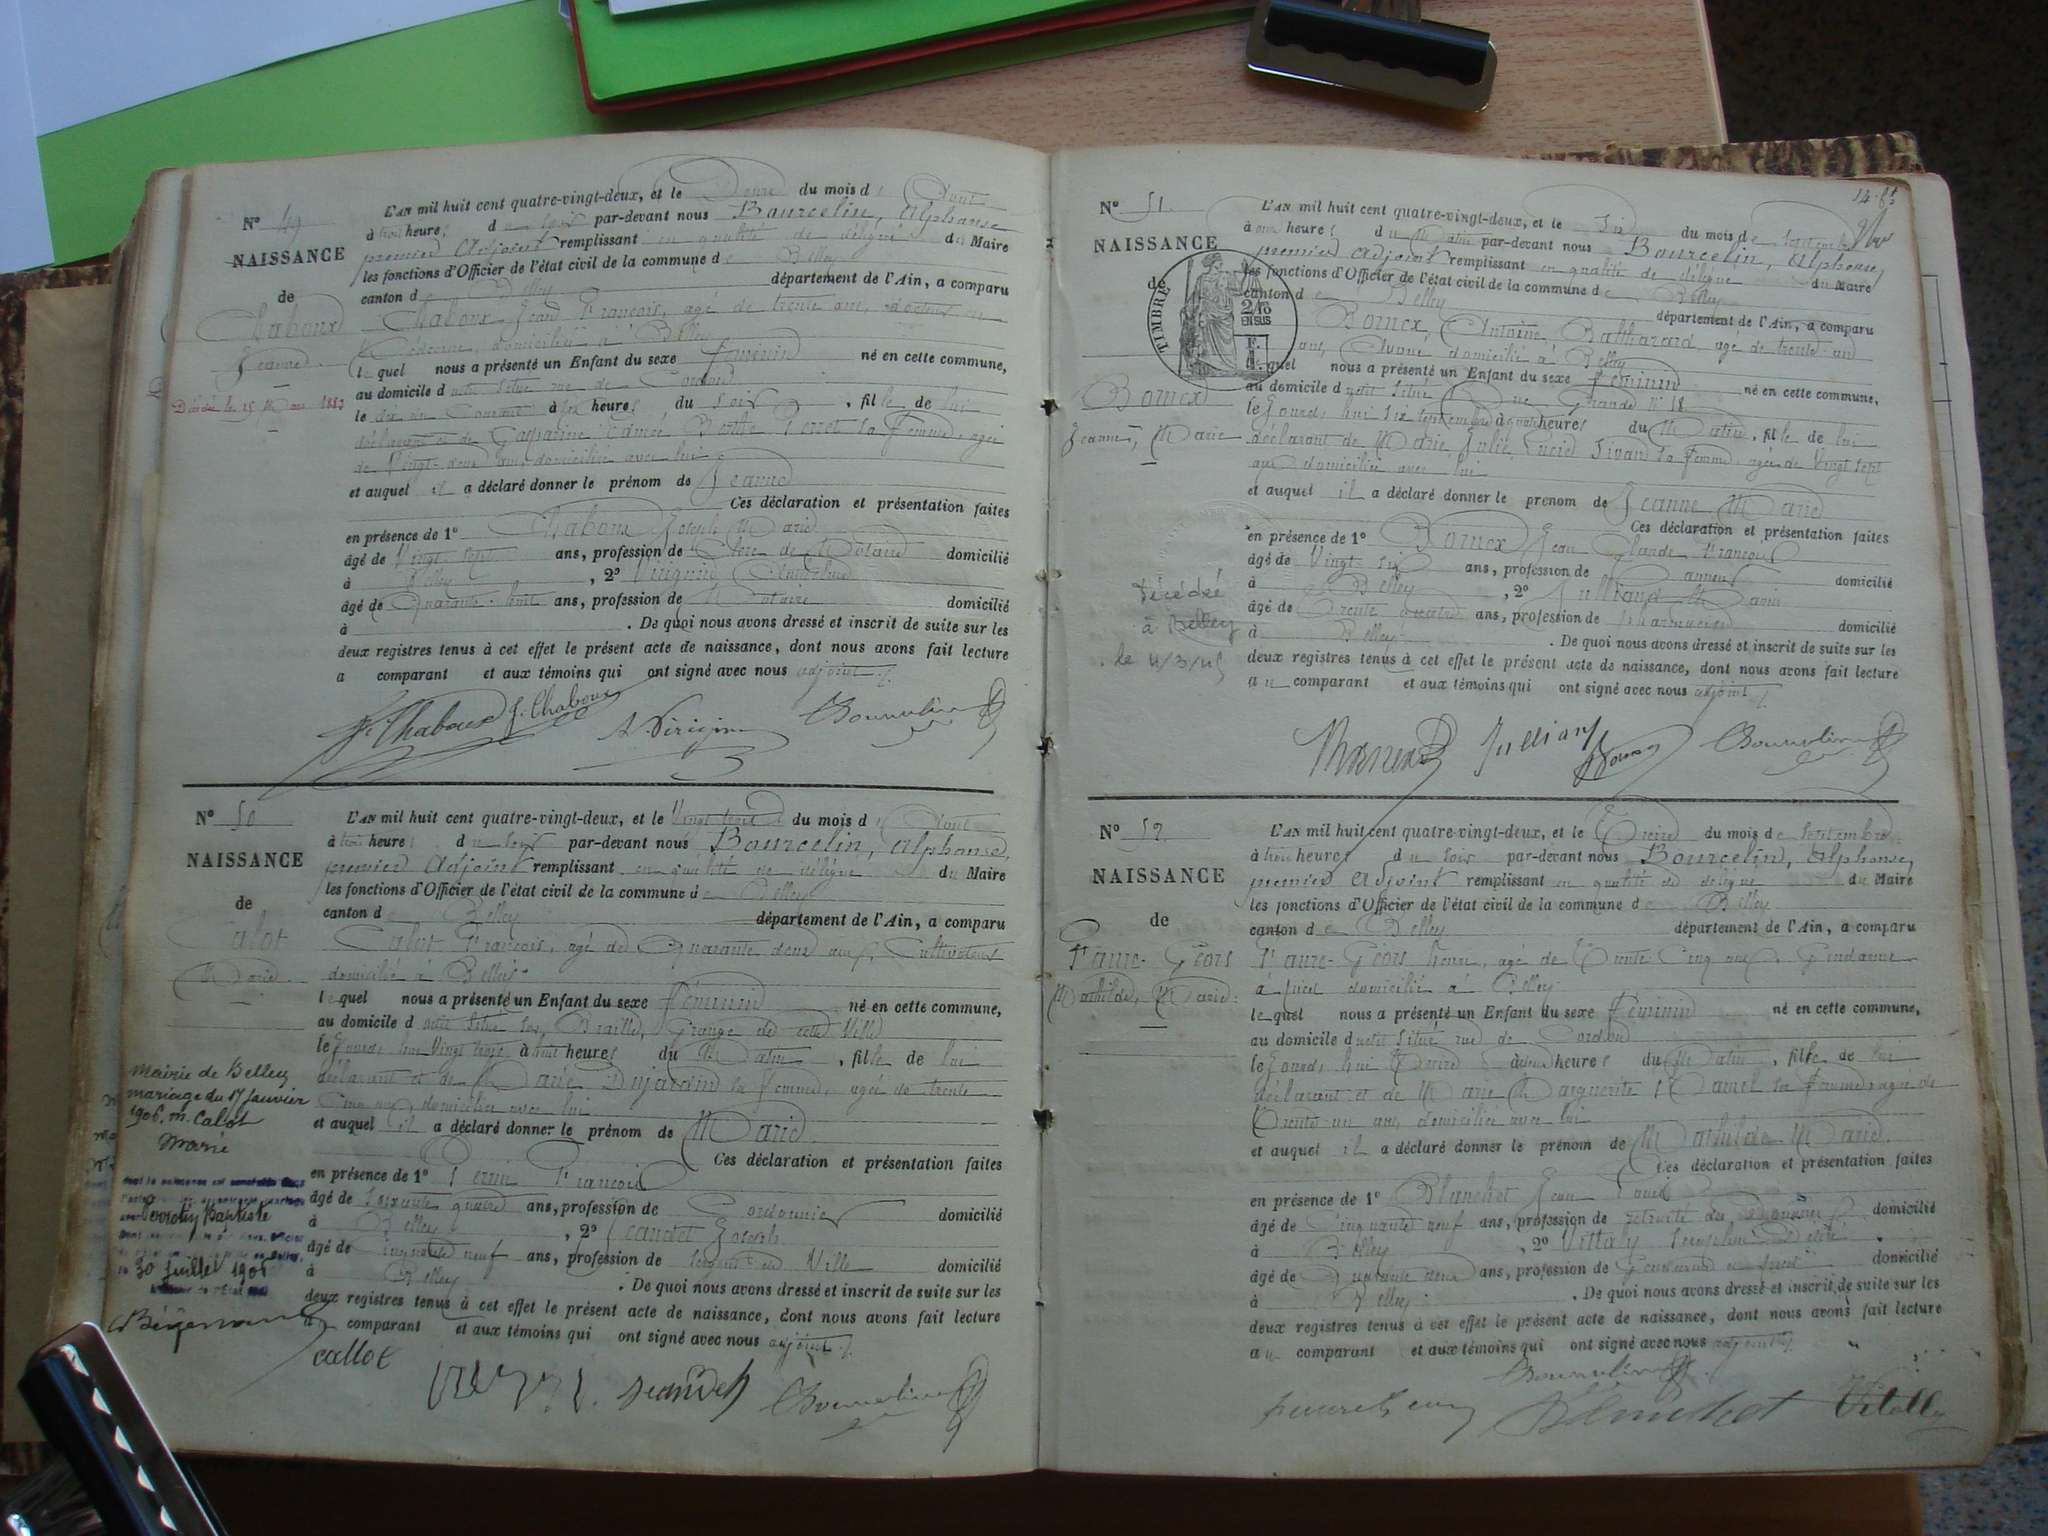 N° 49
NAISSANCE
de
Chaboux
Jeanne
Décédée le 15 Mars 1883
L'AN mil huit cent quatre-vingt-deux, et le Douze du mois d Août
à trois heures du soir par-devant nous Bourcelin, Alphonse
premier Adjoint remplissant en qualité de délégué du Maire
les fonctions d'Officier de l'état civil de la commune de Belley
canton d Belley département de l'Ain, a comparu
Chaboux Jean François, agé de trente ans, docteur en
Médecine, domicilié à Belley
lequel nous a présenté un Enfant du sexe féminin né en cette commune,
au domicile d situé rue de
le dix du Courant à six heures du soir, fille de lui
déclarant et de Gasparine Aimée Berthe Perret sa femme, agée
de Vingt-deux ans, domiciliée avec lui
et auquel il a déclaré donner le prénom de Jeanne
Ces déclaration et présentation faites
en présence de 1° Chaboux Joseph Marie
âgé de Vingt-sept ans, profession de Clerc de Notaire domicilié
à Belley, 2° Virignin
âgé de Quarante-huit ans, profession de Notaire domicilié
à . De quoi nous avons dressé et inscrit de suite sur les
deux registres tenus à cet effet le présent acte de naissance, dont nous avons fait lecture
a comparant et aux témoins qui ont signé avec nous adjoint ./.
F. Chaboux J. Chaboux A. Virignin Bourcelin
N° 50
NAISSANCE
de
Calot
Marie
Mairie de Belley
mariage du 17 Janvier
1906. m. Calot
Marie
Baptiste
30 Juillet 1906
L'AN mil huit cent quatre-vingt-deux, et le Vingt trois du mois d Août
à trois heures du soir par-devant nous Bourcelin, Alphonse,
premier Adjoint remplissant en qualité de délégué du Maire
les fonctions d'Officier de l'état civil de la commune de Belley
canton de Belley département de l'Ain, a comparu
Calot François, agé de Quarante deux ans, Cultivateur
domicilié à Belley
lequel nous a présenté un Enfant du sexe féminin né en cette commune,
au domicile d situé Grange de cette Ville
le Jourd'hui Vingt trois à huit heures du Matin, fille de lui
déclarant et de Marie Dujardin sa femme, agée de trente
Cinq ans, domiciliée avec lui
et auquel il a déclaré donner le prénom de Marie
Ces déclaration et présentation faites
en présence de 1° Perrin François
âgé de soixante quatre ans, profession de Cordonnier domicilié
à Belley, 2° Jeandet Joseph
âgé de Cinquante neuf ans, profession de Sergent de Ville domicilié
à Belley . De quoi nous avons dressé et inscrit de suite sur les
deux registres tenus à cet effet le présent acte de naissance, dont nous avons fait lecture
au comparant et aux témoins qui ont signé avec nous adjoint ./.
callot Jeandet Bourcelin
N° 51
NAISSANCE
de
TIMBRE
2/10
EN SUS
Bornex
Jeanne, Marie
Décédée
à Belley
le 4/3/45
L'AN mil huit cent quatre-vingt-deux, et le Six du mois de septembre
à onze heures du Matin par-devant nous Bourcelin, Alphonse,
premier Adjoint remplissant en qualité de délégué du Maire
les fonctions d'Officier de l'état civil de la commune de Belley
canton de Belley département de l'Ain, a comparu
Bornex, Antoine, Balthazard, agé de trente-un
ans, Avoué domicilié à Belley
lequel nous a présenté un Enfant du sexe féminin né en cette commune,
au domicile d situé Rue Grande N° 18
le Jourd'hui six septembre à quatre heures du Matin, fille de lui
déclarant de Marie, Julie, Lucie Sivan sa femme, agée de Vingt sept
ans domiciliée avec lui
et auquel il a déclaré donner le prénom de Jeanne Marie
Ces déclaration et présentation faites
en présence de 1° Bornex Jean Claude François
âgé de Vingt-six ans, profession de Tanneur domicilié
à Belley, 2° Julliand Marie
âgé de Trente quatre ans, profession de Pharmacien domicilié
à Belley . De quoi nous avons dressé et inscrit de suite sur les
deux registres tenus à cet effet le présent acte de naissance, dont nous avons fait lecture
au comparant et aux témoins qui ont signé avec nous adjoint ./.
Julliand Bornex Bourcelin
N° 52
NAISSANCE
de
Faure-Géors
Mathilde, Marie
L'AN mil huit cent quatre-vingt-deux, et le Treize du mois de septembre
à trois heures du soir par-devant nous Bourcelin, Alphonse,
premier Adjoint remplissant en qualité de délégué du Maire
les fonctions d'Officier de l'état civil de la commune de Belley
canton de Belley département de l'Ain, a comparu
Faure-Géors Henri, agé de Trente Cinq ans, Gendarme
à pied domicilié à Belley
lequel nous a présenté un Enfant du sexe féminin né en cette commune,
au domicile d situé rue de
le Jourd'hui Treize à heures du Matin, fille de lui
déclarant et de Marie Marguerite sa femme agée de
Trente un ans, domiciliée avec lui
et auquel il a déclaré donner le prénom de Mathilde Marie
Ces déclaration et présentation faites
en présence de 1° Blanchet Jean Louis
âgé de Cinquante neuf ans, profession de retraité des Douanes domicilié
à Belley, 2° Vitally
âgé de Quarante deux ans, profession de Gendarme à pied domicilié
à Belley . De quoi nous avons dressé et inscrit de suite sur les
deux registres tenus à cet effet le présent acte de naissance, dont nous avons fait lecture
au comparant et aux témoins qui ont signé avec nous adjoint ./.
Bourcelin
Blanchet Vitally